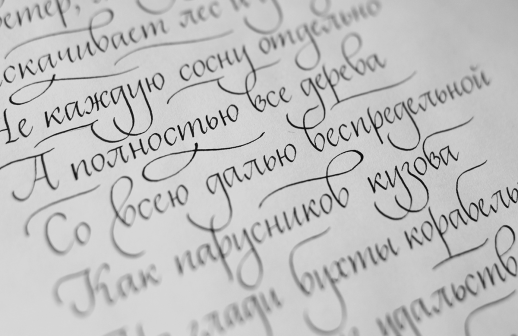 ветер,
раскачивает лес и
Не каждую сосну отдельно
А полностью все дерева
Со всею далью беспредельной
Как парусников кузова
глади бухты корабель
удальств